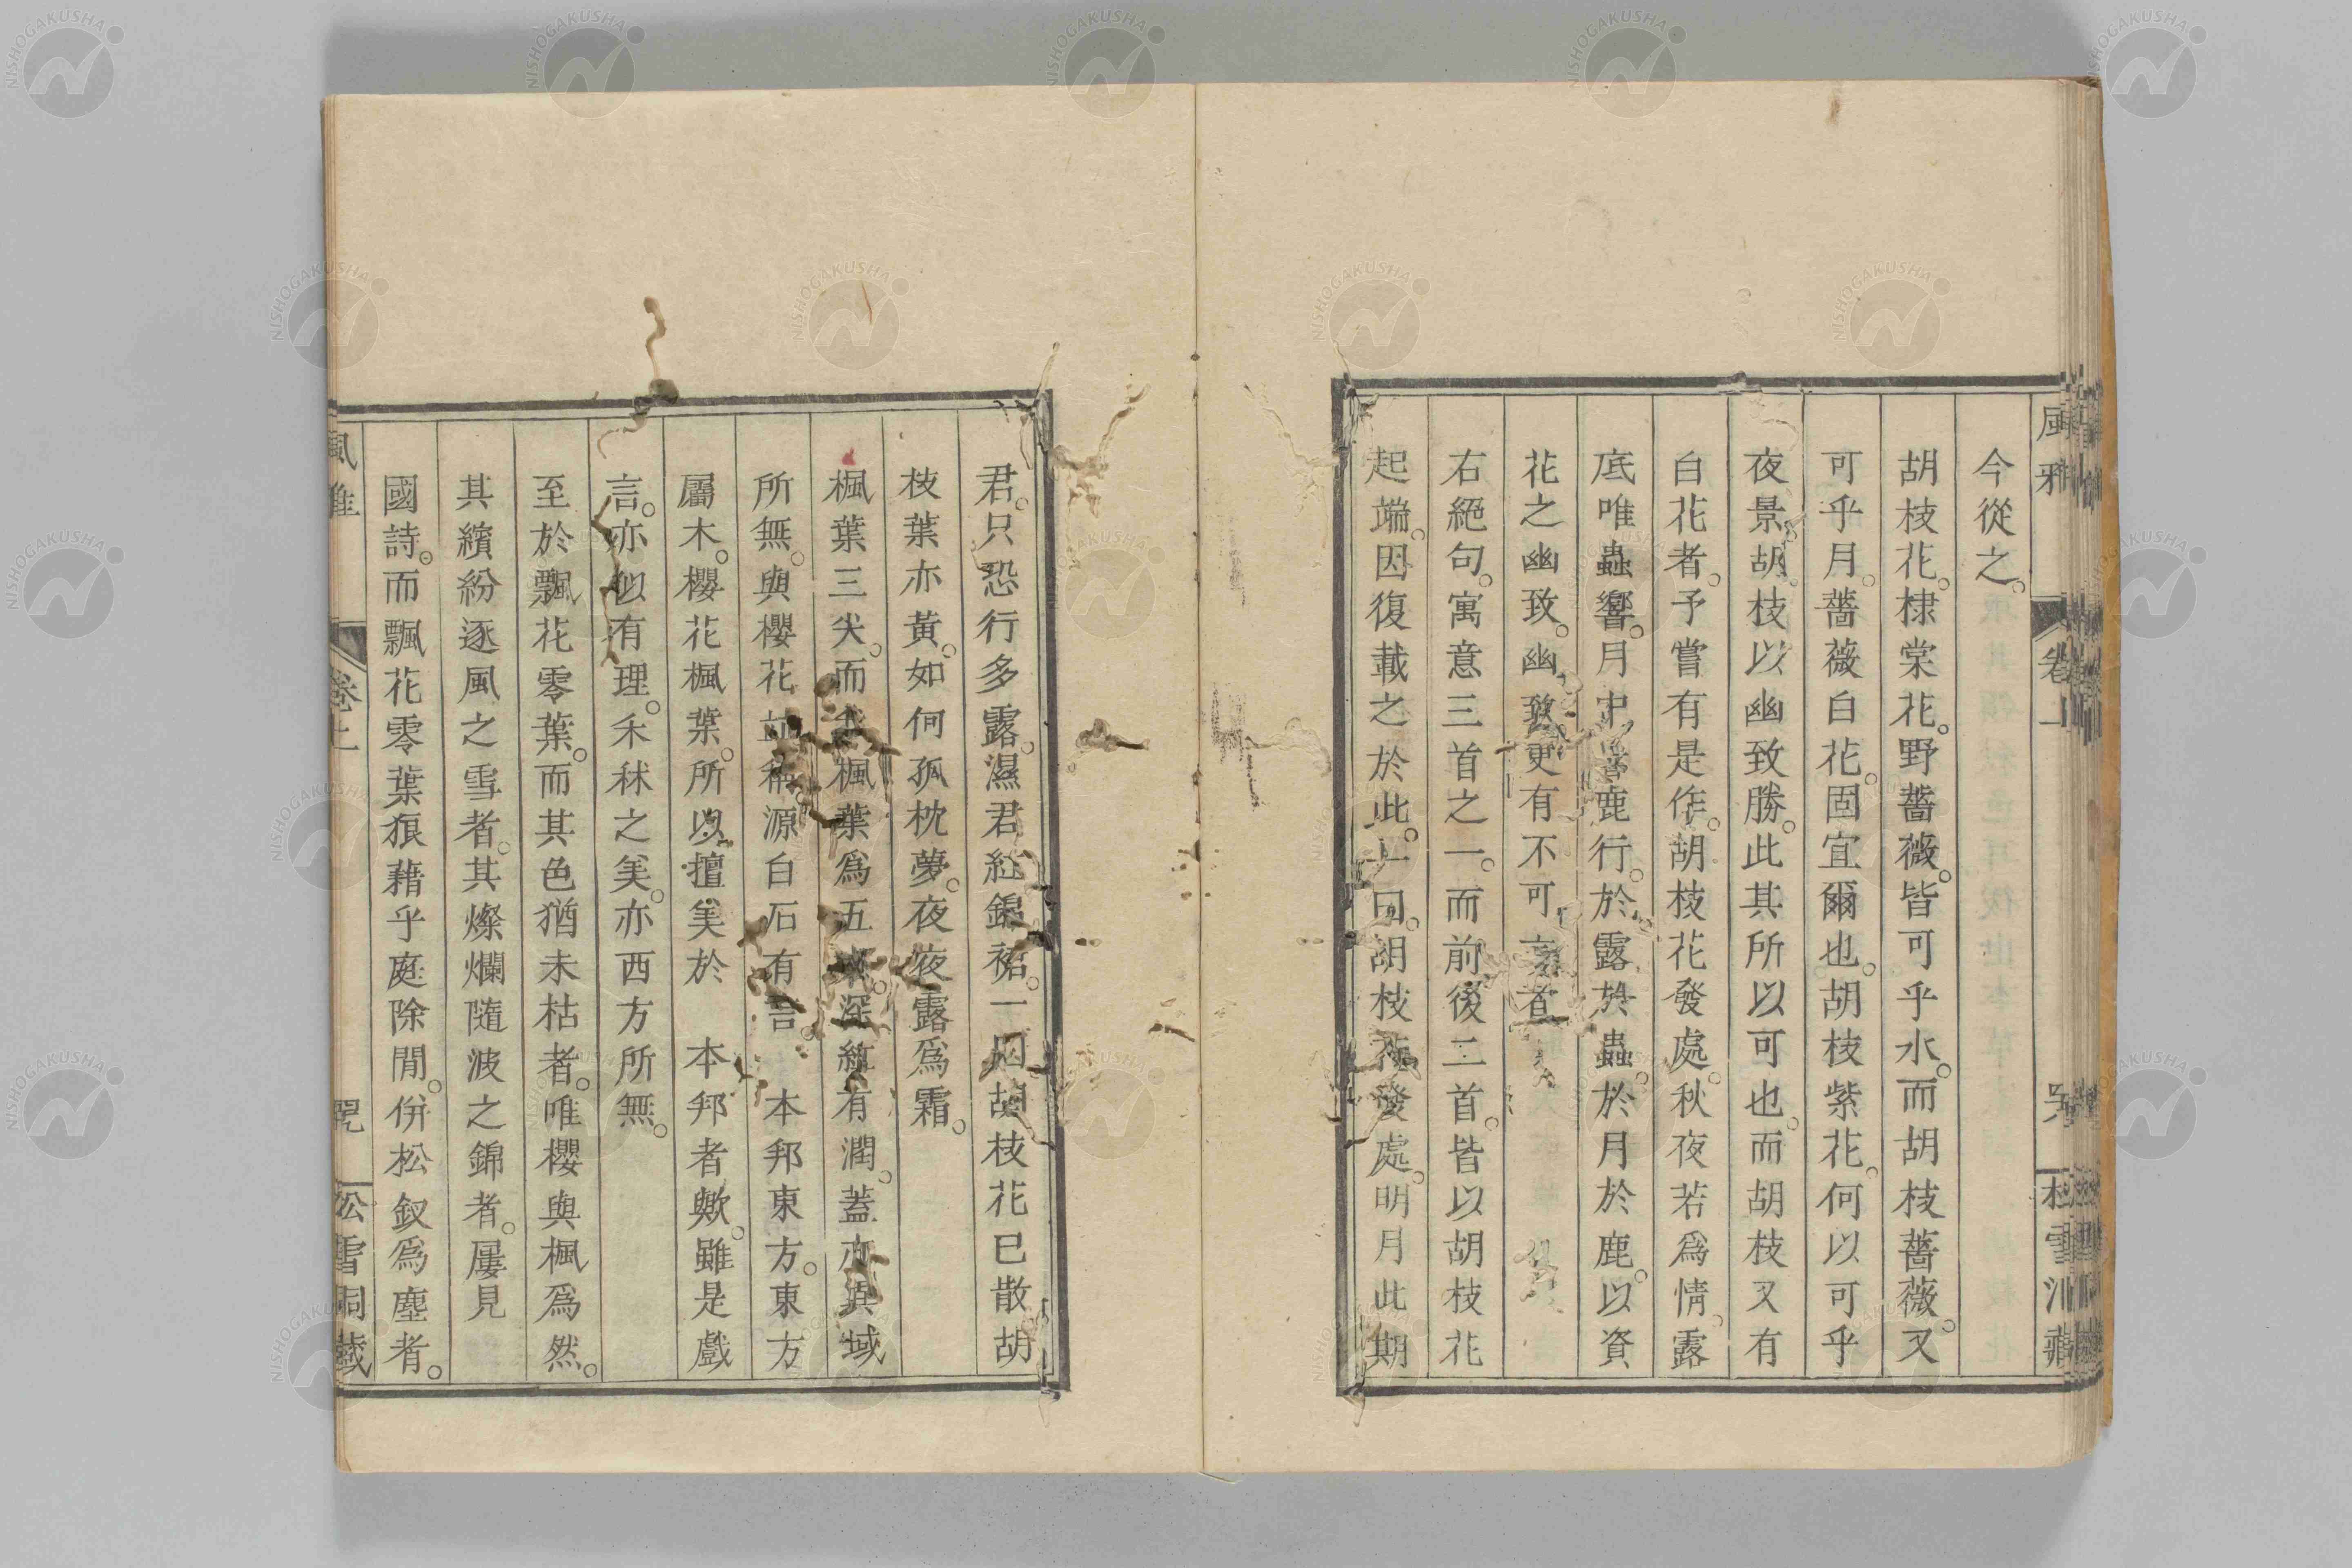 今從之。
胡枝花。棣棠花。野薔薇。皆可乎水。而胡枝薔薇。又
可乎月。薔薇白花。固宜爾也。胡枝紫花。何以可乎
夜景。胡枝以幽致勝。此其所以可也。而胡枝又有
白花者。予嘗有是作。胡枝花發處。秋夜若爲情。露
底唯蟲響。月中鹿行。於露於蟲。於月於鹿。以資
花之幽致。幽致更有不可言者
右絕句。寓意三首之一。而前後二首。皆以胡枝花
起端。因復載之於此。一曰。胡枝花發處。明月此期
君。只恐行多露。濕君紅錦裙。一曰胡枝花已散胡
枝葉亦黃。如何孤枕夢。夜夜露爲霜。
楓葉三尖。而楓葉爲五深紅有潤。蓋亦異域
所無。與櫻花並稱源白石有言。本邦東方。東方
屬木。櫻花楓葉。所以擅美於 本邦者歟。雖是戲
言。亦似有理。禾秫之美。亦西方所無。
至於飄花零葉。而其色猶未枯者。唯櫻與楓爲然。
其繽紛逐風之雪者。其燦爛隨波之錦者。屢見
國詩。而飄花零葉狼藉乎庭除間。併松釵爲塵者。
風雅
卷上